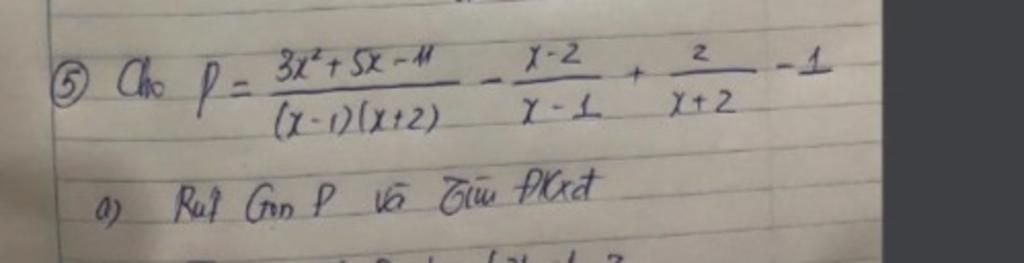 ⑤ Cho P = \frac{3x²+5x-11}{(x-1)(x+2)} - \frac{x-2}{x-1} + \frac{2}{x+2} - 1
a) Rút Gọn P và Tìm ĐKxđ